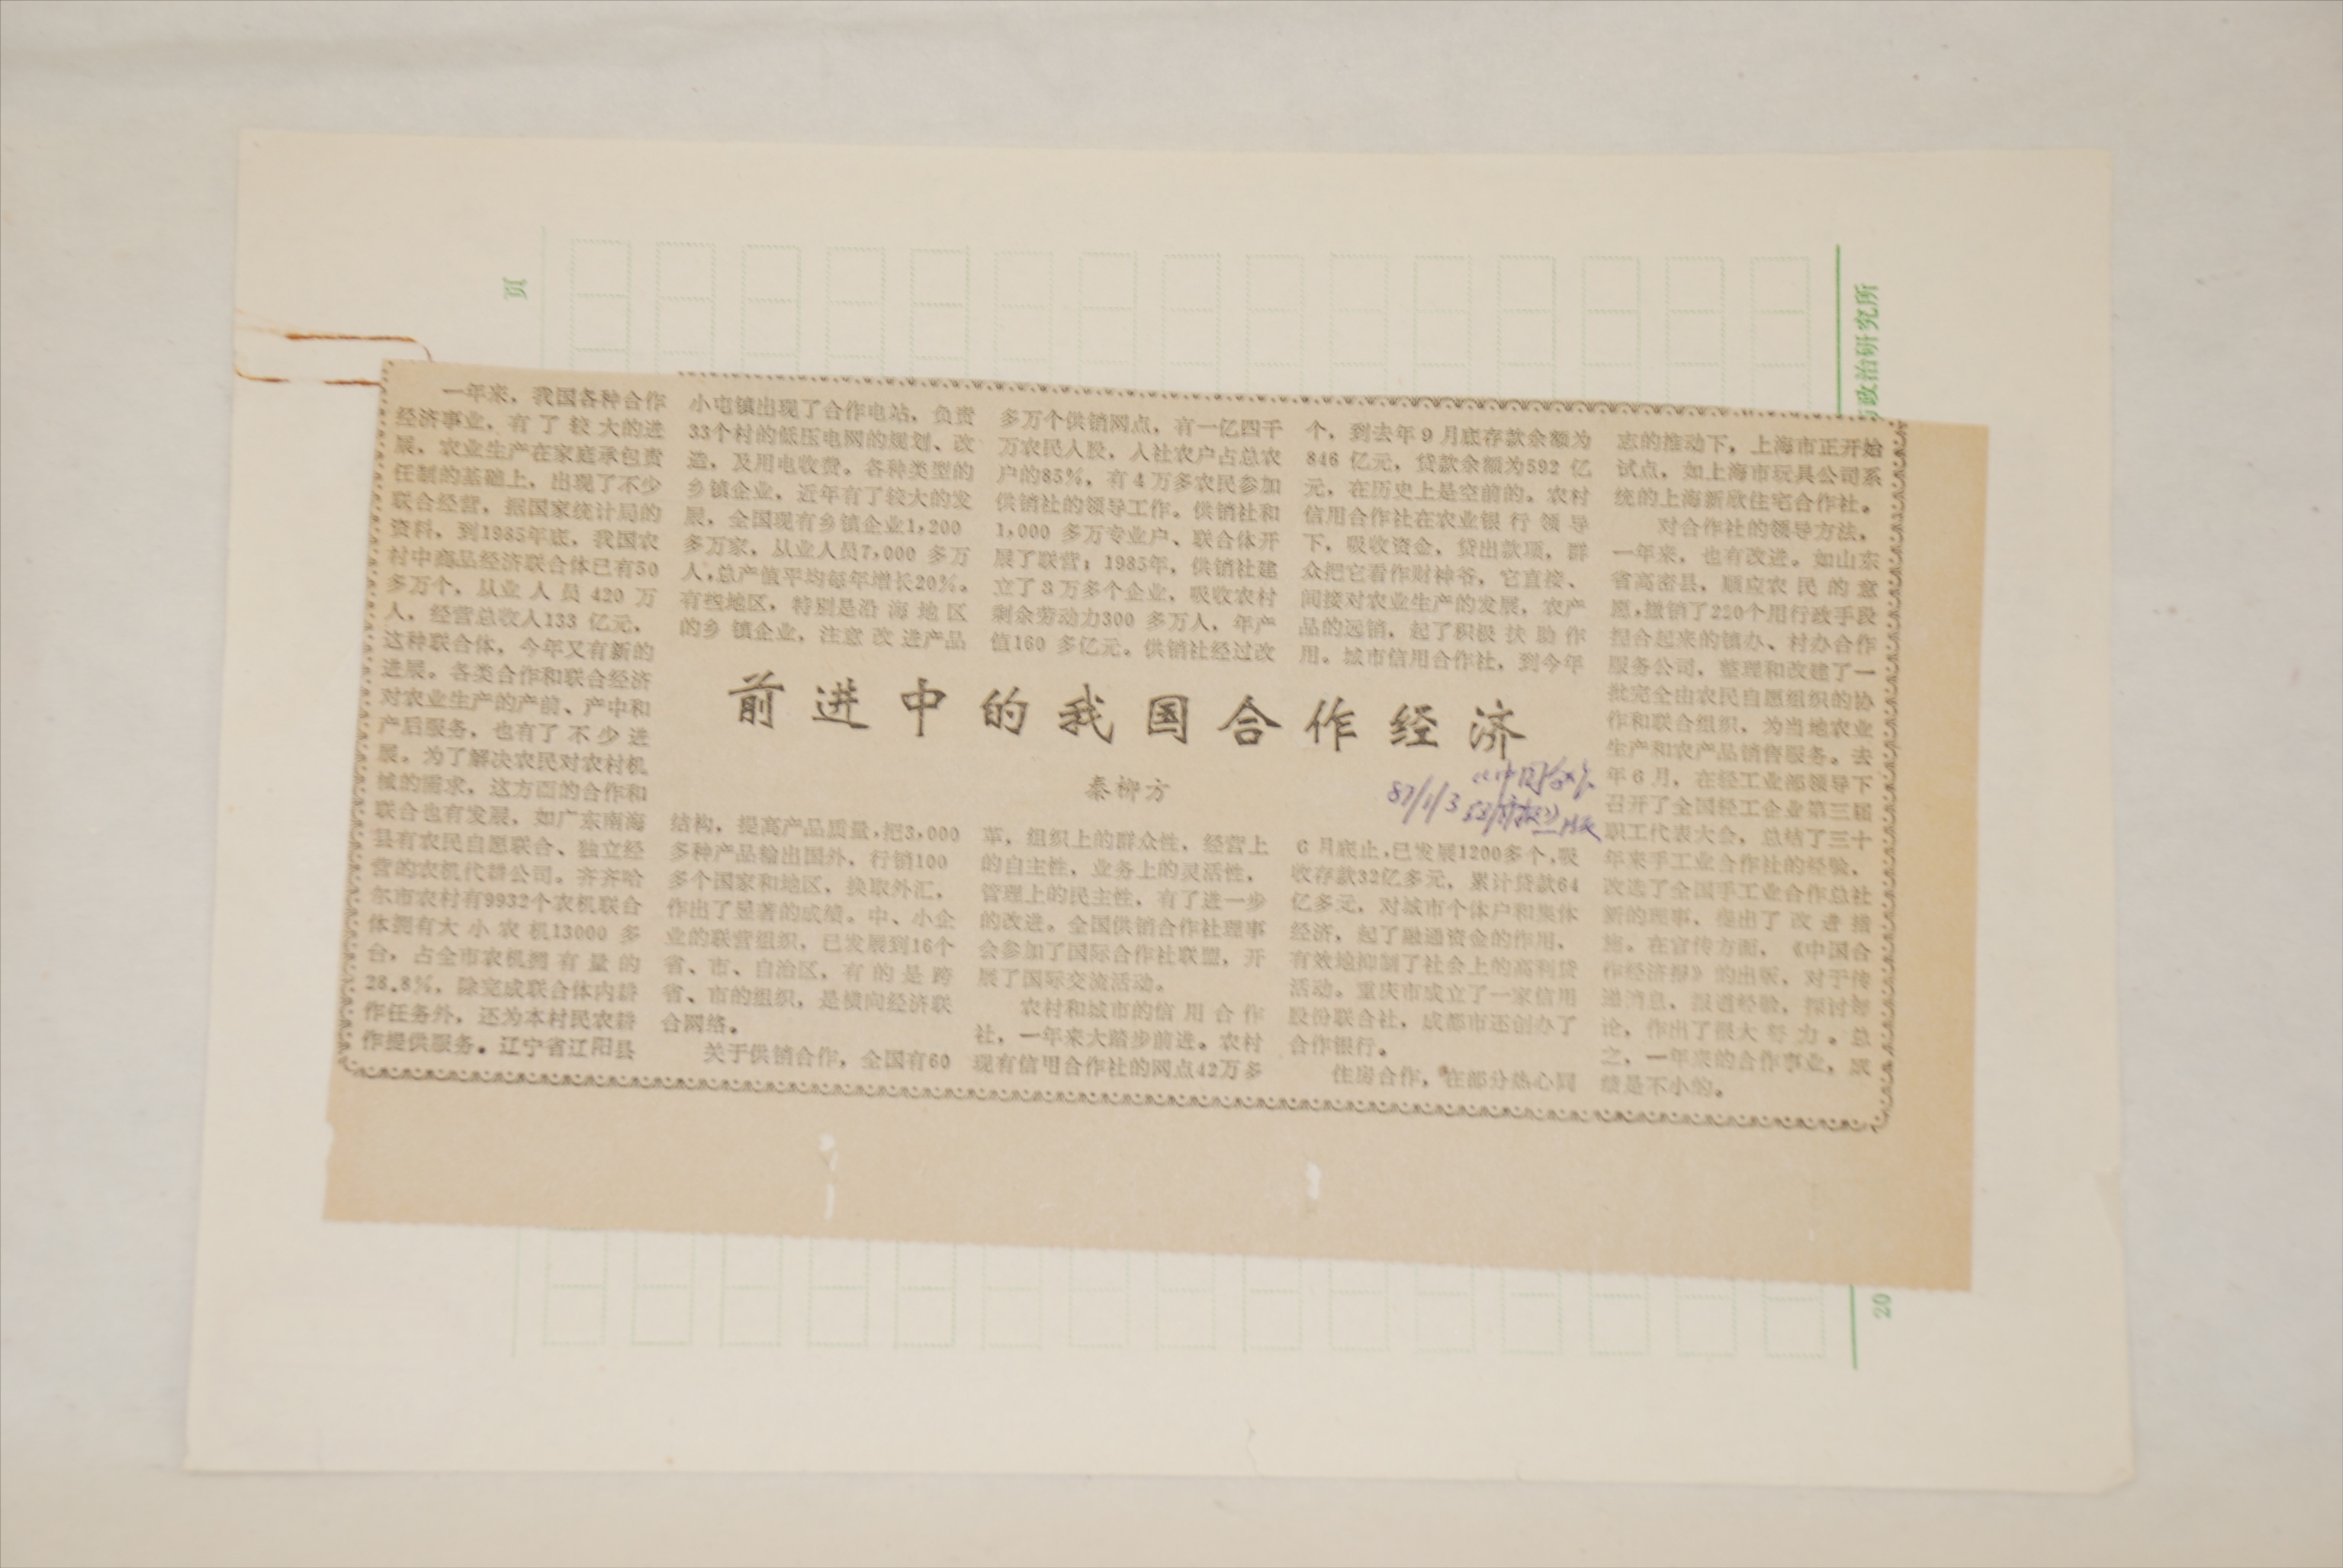 页
政治研究所
前进中的我国合作经济
秦柳方
87/1/3
一年来，我国各种合作
经济事业，有了较大的进
展，农业生产在家庭承包责
任制的基础上，出现了不少
联合经营，据国家统计局的
资料，到1985年底，我国农
村中商品经济联合体已有50
多万个，从业人员420万
人，经营总收入133亿元，
这种联合体，今年又有新的
进展。各类合作和联合经济
对农业生产的产前、产中和
产后服务，也有了不少进
展。为了解决农民对农村机
械的需求，这方面的合作和
联合也有发展，如广东南海
县有农民自愿联合、独立经
营的农机代耕公司。齐齐哈
尔市农村有9932个农机联合
体拥有大小农机13000多
台，占全市农机拥有量的
28.8%，除完成联合体内耕
作任务外，还为本村民农耕
作提供服务。辽宁省辽阳县
小屯镇出现了合作电站，负责
33个村的低压电网的规划、改
造，及用电收费。各种类型的
乡镇企业，近年有了较大的发
展，全国现有乡镇企业1,200
多万家，从业人员7,000多万
人，总产值平均每年增长20%。
有些地区，特别是沿海地区
的乡镇企业，注意改进产品
结构，提高产品质量，把3,000
多种产品输出国外，行销100
多个国家和地区，换取外汇，
作出了显著的成绩。中、小企
业的联营组织，已发展到16个
省、市、自治区，有的是跨
省、市的组织，是横向经济联
合网络。
关于供销合作，全国有60
多万个供销网点，有一亿四千
万农民入股，入社农户占总农
户的85%，有4万多农民参加
供销社的领导工作。供销社和
1,000多万专业户、联合体开
展了联营；1985年，供销社建
立了3万多个企业，吸收农村
剩余劳动力300多万人，年产
值160多亿元。供销社经过改
革，组织上的群众性，经营上
的自主性，业务上的灵活性，
管理上的民主性，有了进一步
的改进。全国供销合作社理事
会参加了国际合作社联盟，开
展了国际交流活动。
农村和城市的信用合作
社，一年来大踏步前进。农村
现有信用合作社的网点42万多
个，到去年9月底存款余额为
846亿元，贷款余额为592亿
元，在历史上是空前的。农村
信用合作社在农业银行领导
下，吸收资金，贷出款项，群
众把它看作财神爷，它直接、
间接对农业生产的发展，农产
品的远销，起了积极扶助作
用。城市信用合作社，到今年
6月底止，已发展1200多个，吸
收存款32亿多元，累计贷款64
亿多元，对城市个体户和集体
经济，起了融通资金的作用，
有效地抑制了社会上的高利贷
活动。重庆市成立了一家信用
股份联合社，成都市还创办了
合作银行。
住房合作，在部分热心同
志的推动下，上海市正开始
试点，如上海市玩具公司系
统的上海新欣住宅合作社。
对合作社的领导方法，
一年来，也有改进。如山东
省高密县，顺应农民的意
愿，撤销了220个用行政手段
捏合起来的镇办、村办合作
服务公司，整理和改建了一
批完全由农民自愿组织的协
作和联合组织，为当地农业
生产和农产品销售服务。去
年6月，在轻工业部领导下
召开了全国轻工企业第三届
职工代表大会，总结了三十
年来手工业合作社的经验，
改选了全国手工业合作总社
新的理事，提出了改进措
施。在宣传方面，《中国合
作经济报》的出版，对于传
递消息，报道经验，探讨理
论，作出了很大努力。总
之，一年来的合作事业，成
绩是不小的。
20